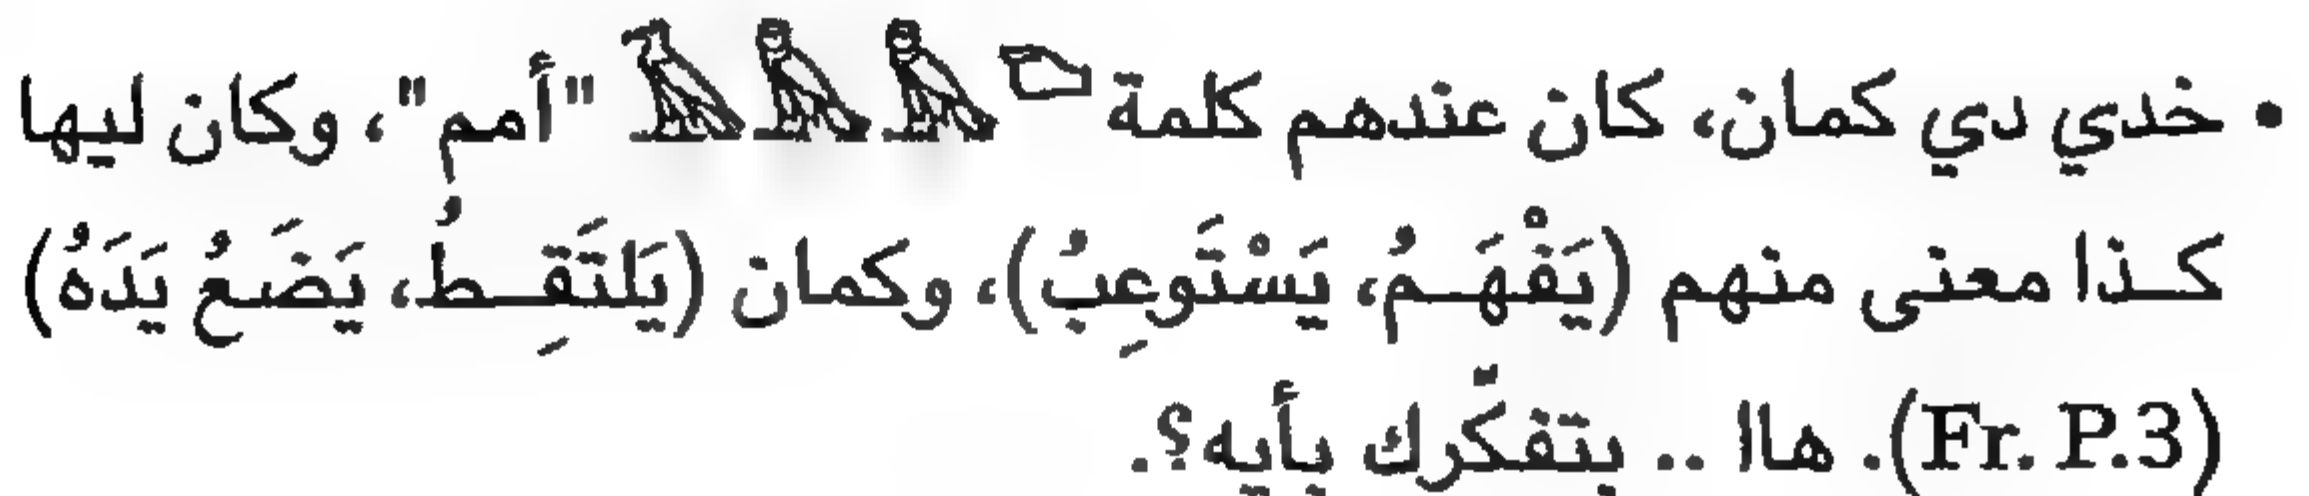 • خدي دي كمان، كان عندهم كلمة 𓄿𓅓𓅓𓂧 "أمم"، وكان ليها
كـذا معنى منهم (يَفْهَـمُ، يَسْتَوعِبُ)، وكمان (يَلتَقِـطُ، يَضَعُ يَدَهُ)
(Fr. P.3). هاا .. بتفكّرك بأيه؟.